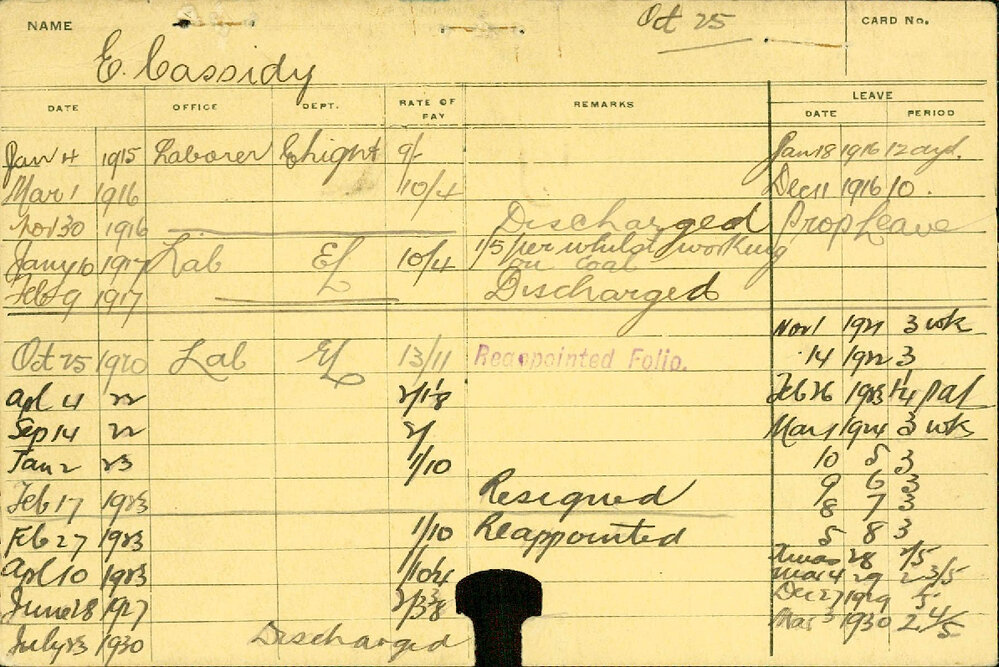 NAME Oct 25 CARD No.
E. Cassidy
DATE OFFICE DEPT. RATE OF PAY REMARKS LEAVE
DATE PERIOD
Jan 4 1915 Laborer 9/- Jan 18 1916 12 dys.
Mar 1 1916 10/4 Dec 11 1916 10.
Nov 30 1916 Discharged Prop Leave
Jany 10 1917 Lab El 10/4 1/5 per whilst working
on coal
Feb 9 1917 Discharged
Nov 1 1921 3 wk
Oct 25 1920 Lab El 13/11 Reappointed Folio. 14 1922 3
Apl 4 22 2/1 1/8 Feb 26 1923 1/4
Sep 14 22 2/ Mar 1 1924 3 wks
Jan 2 23 1/10 10 5 3
9 6 3
Feb 17 1923 Resigned 8 7 3
Feb 27 1923 1/10 Reappointed 5 8 3
Xmas 28 2/5
Apl 10 1923 Mar 4 29 2 3/5
June 28 1927 2/3 3/8 Dec 27 1929
July 23 1930 Discharged Mar 3 1930 2 4/5